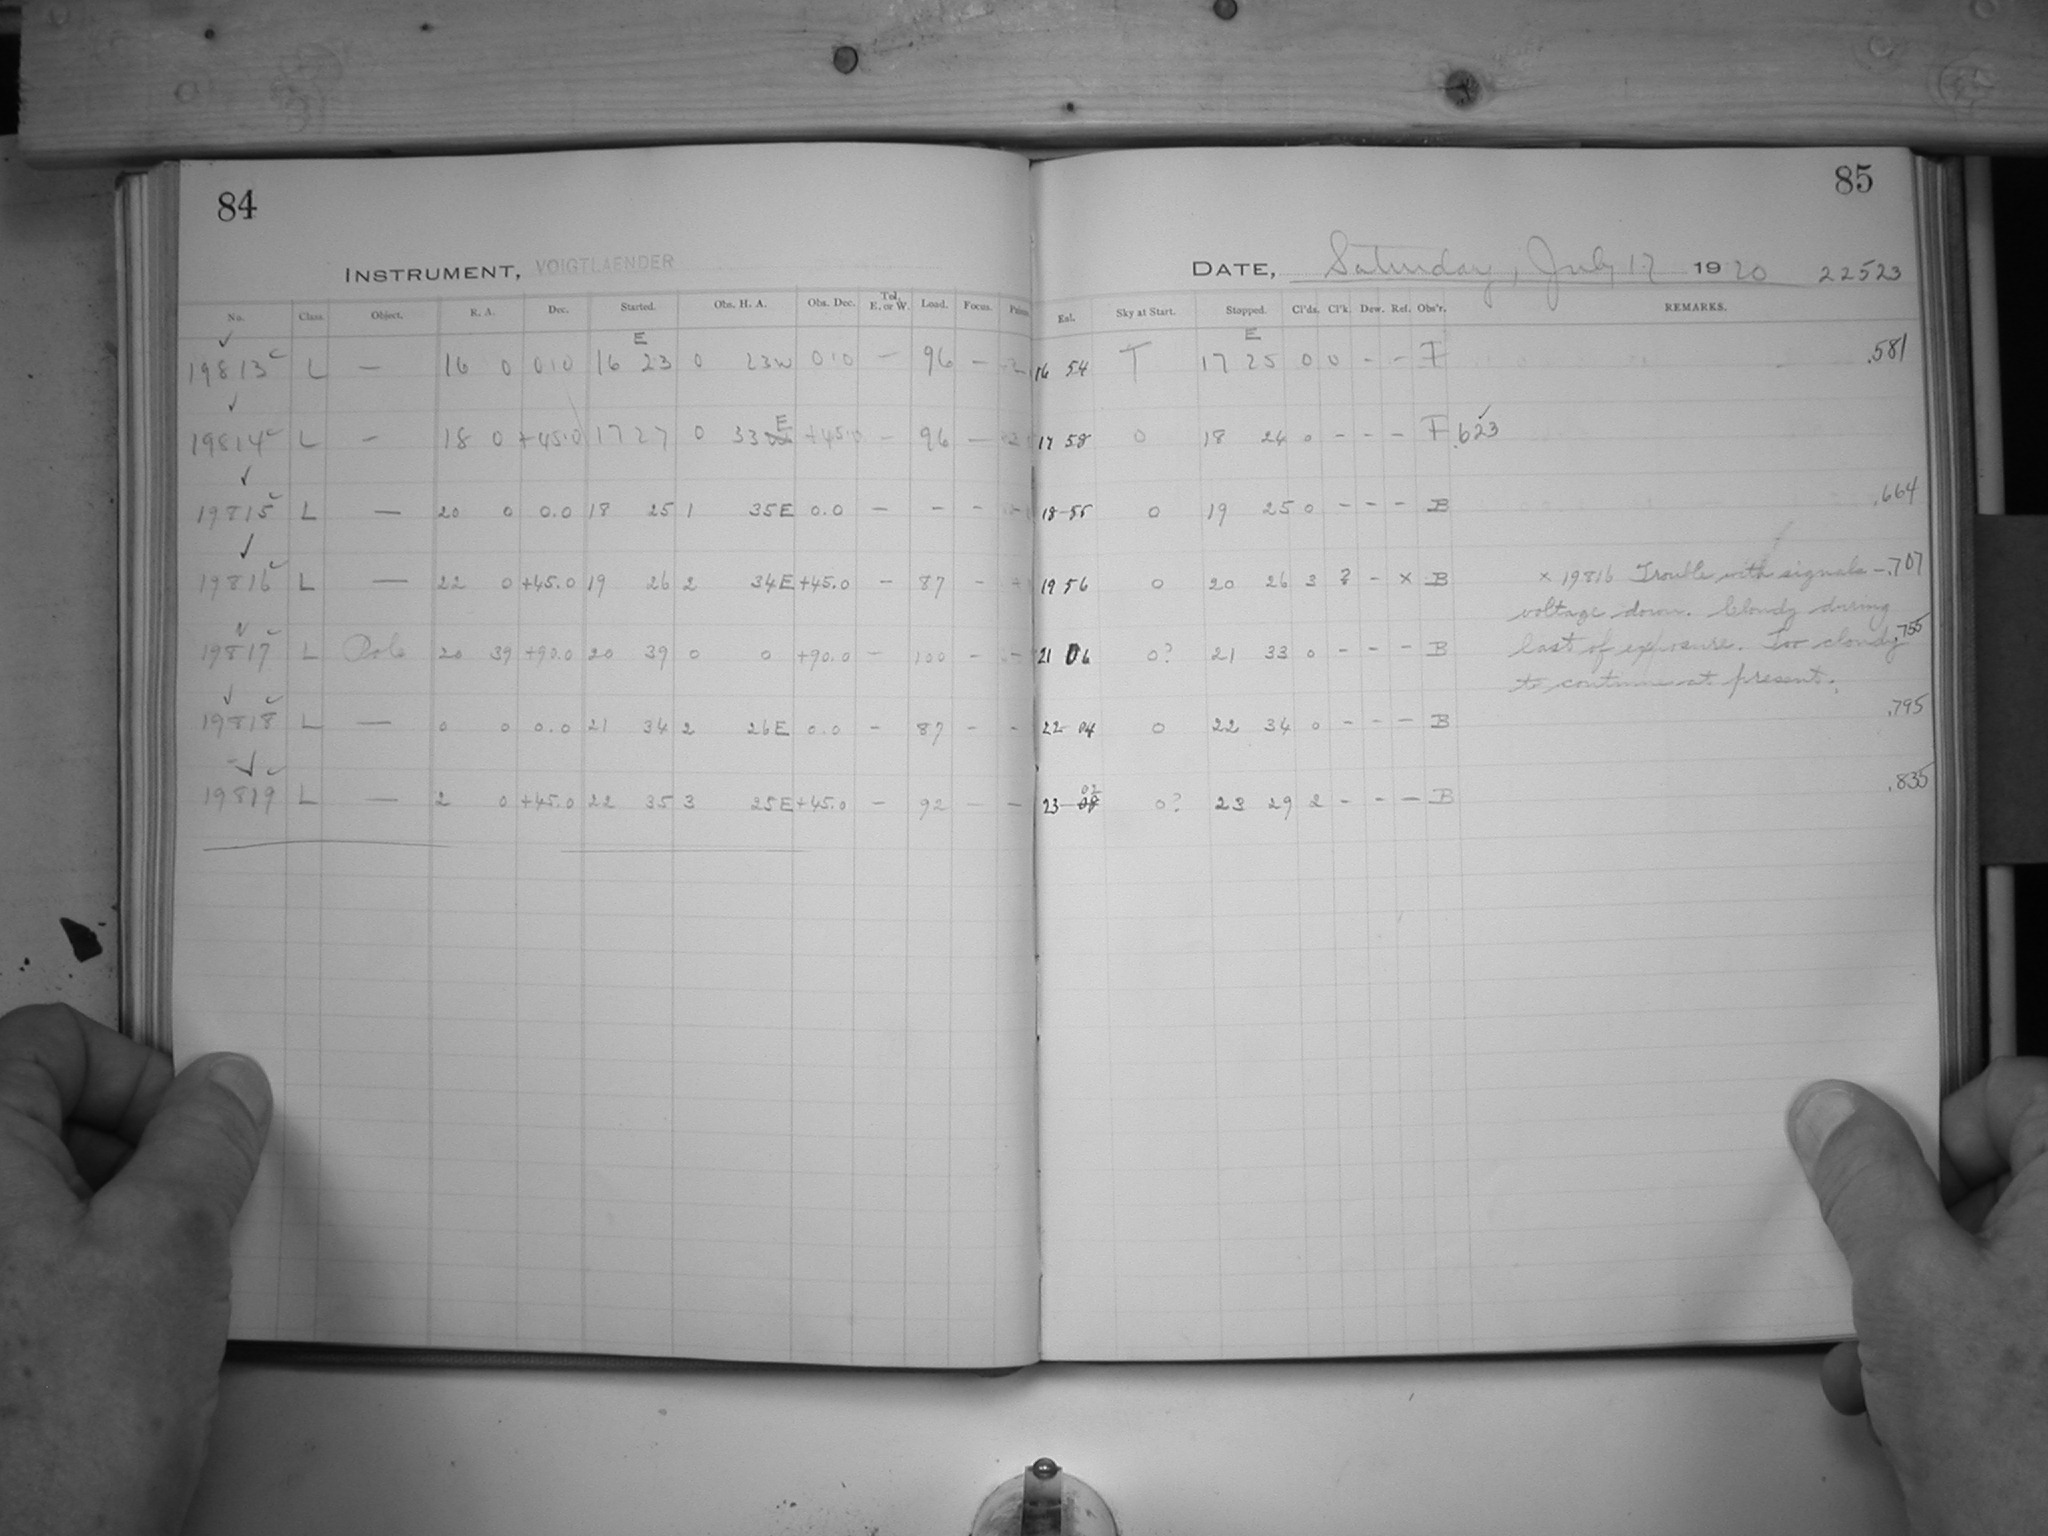 84
85
INSTRUMENT, VOIGTLAENDER
DATE, Saturday, July 17 1920 22523
No. Class. Object. R. A. Dec. Started. Obs. H. A. Obs. Dec. Tel. E. or W. Load. Focus. Exl. Sky at Start. Stopped. Cl'ds. Cl'k. Dew. Ref. Obs'r. REMARKS.
E E
19813 L — 16 0 0.0 16 23 0 23W 0.0 — 96 — 16 54 T 17 25 0 0 - - F .581
19814 L — 18 0 +45.0 17 27 0 33 E +45.0 — 96 — 17 58 0 18 24 0 - - - F .623
19815 L — 20 0 0.0 18 25 1 35E 0.0 — - - 18-55 0 19 25 0 - - - B .664
19816 L — 22 0 +45.0 19 26 2 34E +45.0 - 87 - 19 56 0 20 26 3 ? - x B x 19816 Trouble with signals - .707
voltage down. Cloudy during
19817 L Pole 20 39 +90.0 20 39 0 0 +90.0 - 100 - - 21 06 0? 21 33 0 - - - B last of exposure. Too cloudy .755
to continue at present.
19818 L — 0 0 0.0 21 34 2 26E 0.0 - 87 - - 22-04 0 22 34 0 - - - B .795
19819 L — 2 0 +45.0 22 35 3 25E +45.0 - 92 - - 23-02 0? 23 29 2 - - - B .835